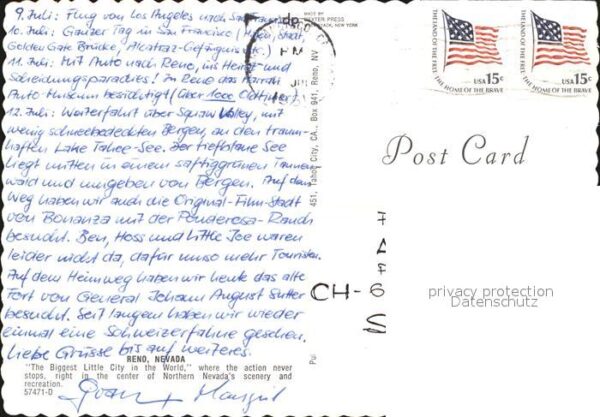 9. Juli: Flug von Los Angeles nach San Francisco
10. Juli: Ganzer Tag in San Francisco (Hafen, Stadt,
Golden Gate Brücke, Alcatraz-Gefängnis etc.)
11. Juli: Mit Auto nach Reno, ins Heirat- und
Scheidungsparadies! In Reno das Harrah
Auto-Museum besichtigt (über 1000 Oldtimer)
12. Juli: Weiterfahrt über Squaw Valley, mit
wenig schneebedeckten Bergen, an den traum-
haften Lake Tahoe-See. Der tiefblaue See
liegt mitten in einem saftiggrünen Tannen-
wald und umgeben von Bergen. Auf dem
Weg haben wir auch die Original-Film-Stadt
von Bonanza mit der Ponderosa-Ranch
besucht. Ben, Hoss und Little Joe waren
leider nicht da, dafür umso mehr Touristen.
Auf dem Heimweg haben wir heute das alte
Fort von General Johann August Sutter
besucht. Seit langem haben wir wieder
einmal eine Schweizerfahne gesehen.
Liebe Grüsse bis auf weiteres.
RENO, NEVADA
"The Biggest Little City in the World," where the action never
stops, right in the center of Northern Nevada's scenery and
recreation.
57471-D
MADE BY
DEXTER PRESS
451, Tahoe City, CA., Box 941, Reno, NV
PM
JUL
THE LAND OF THE FREE
THE HOME OF THE BRAVE
USA 15c
THE LAND OF THE FREE
THE HOME OF THE BRAVE
USA 15c
Post Card
CH-6
privacy protection
Datenschutz